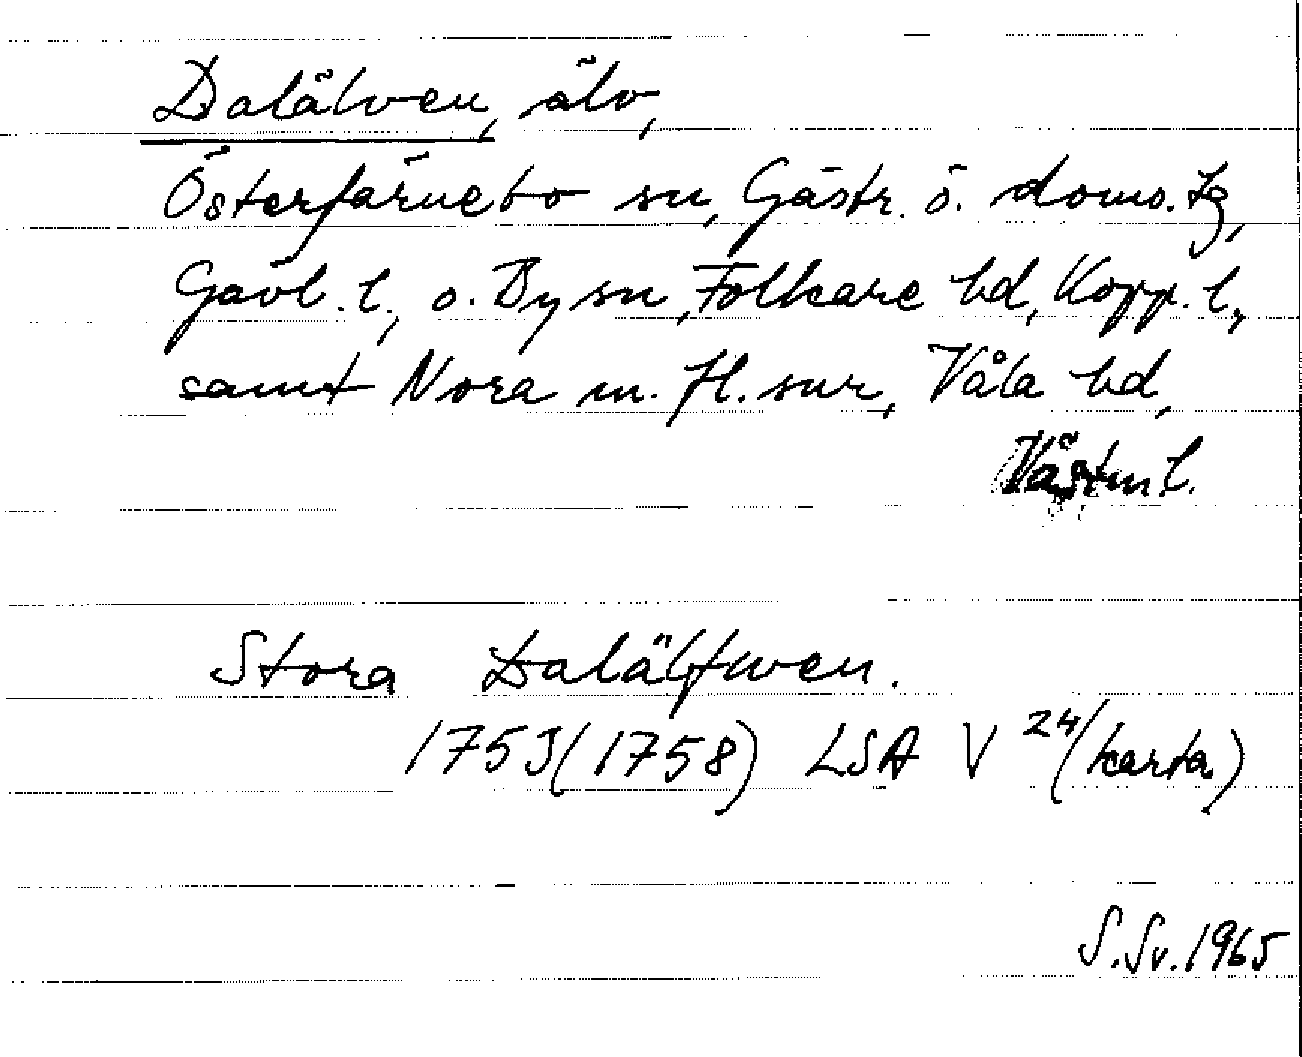 Dalälven, älv,
Österfärnebo sn, Gästr. ö. doms. tg,
Gävl. l., o. By sn, Folkare hd, Kopp. l.,
samt Nora m. fl. snr, Våla hd,
Västm l.
Stora Dalälfwen.
1753(1758) LSA V 24 (karta)
S. Sv. 1965